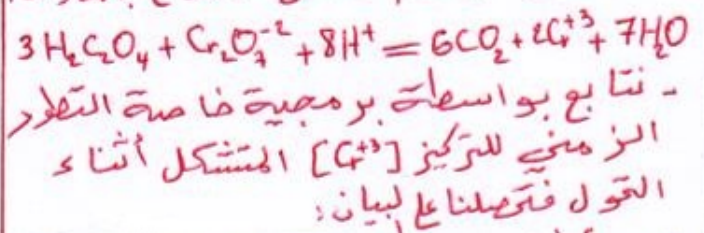 3 H₂C₂O₄ + Cr₂O₇⁻² + 8H⁺ = 6CO₂ + 2Cr⁺³ + 7H₂O
- نتابع بواسطة برمجية خاصة التطور
الزمني للتركيز [Cr⁺³] المتشكل أثناء
التحول فتحصلنا على البيان: